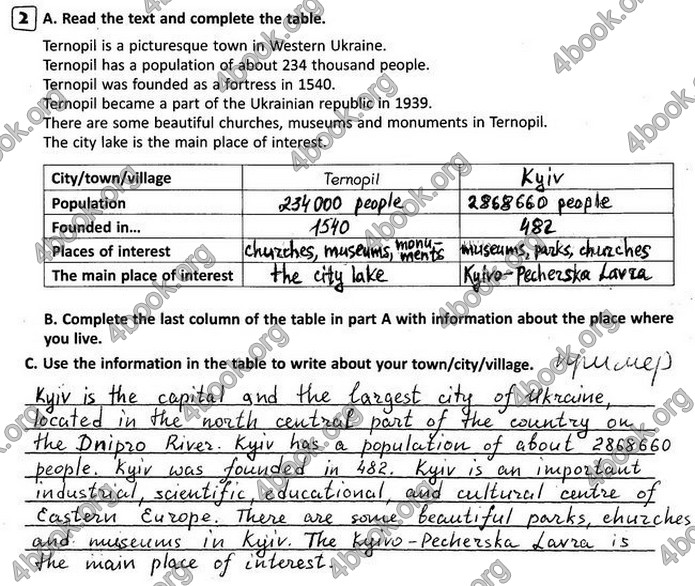 2 A. Read the text and complete the table.
Ternopil is a picturesque town in Western Ukraine.
Ternopil has a population of about 234 thousand people.
Ternopil was founded as a fortress in 1540.
Ternopil became a part of the Ukrainian republic in 1939.
There are some beautiful churches, museums and monuments in Ternopil.
The city lake is the main place of interest.
City/town/village Ternopil Kyiv
Population 234000 people 2868660 people
Founded in... 1540 482
Places of interest churches, museums, monu-ments museums, parks, churches
The main place of interest the city lake Kyivo-Pecherska Lavra
B. Complete the last column of the table in part A with information about the place where
you live.
C. Use the information in the table to write about your town/city/village. Пример
Kyiv is the capital and the largest city of Ukraine,
located in the north central part of the country on
the Dnipro River. Kyiv has a population of about 2868660
people. Kyiv was founded in 482. Kyiv is an important
industrial, scientific, educational, and cultural centre of
Eastern Europe. There are some beautiful parks, churches
and museums in Kyiv. The Kyivo-Pecherska Lavra is
the main place of interest.
4book.org